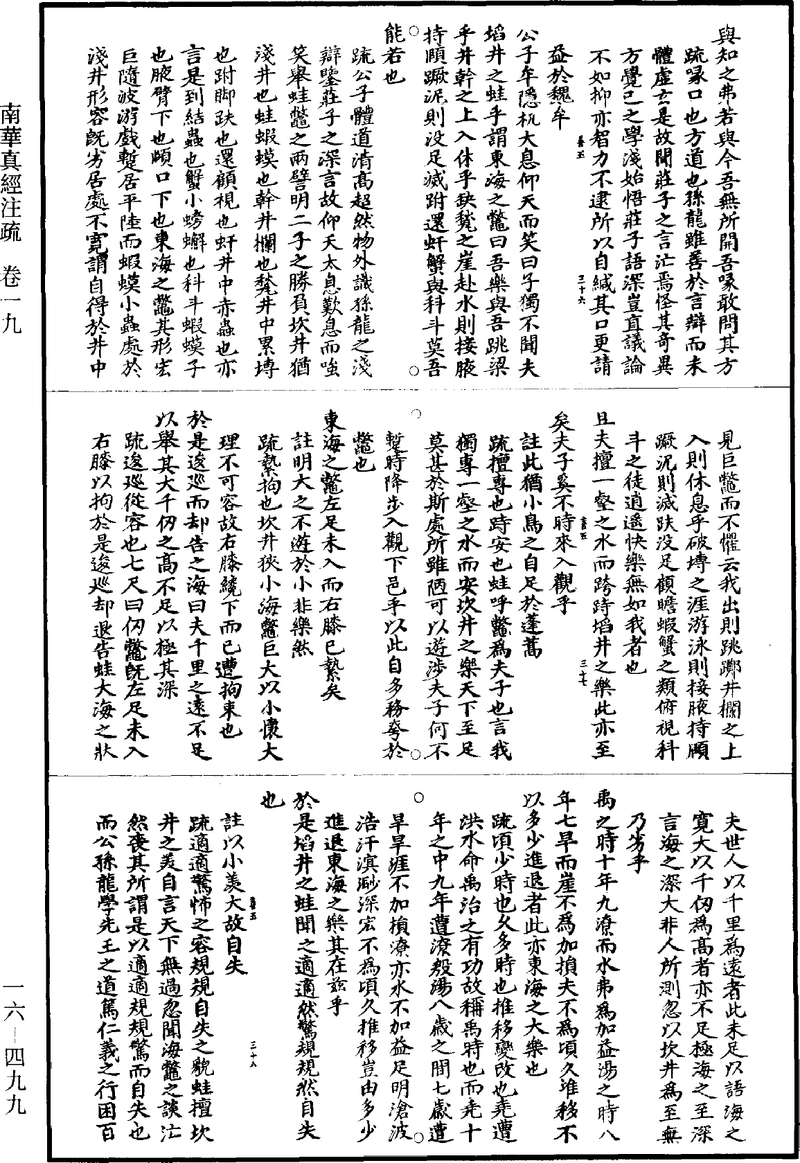 南華真經注疏　卷一九
一六—四九九
與知之弗若與今吾無所開吾喙敢問其方
疏喙口也方道也孫龍雖善於言辯而未
體虛玄是故聞莊子之言茫焉怪其奇異
方覺己之學淺始悟莊子語深豈直議論
不如抑亦智力不逮所以自緘其口更請
益於魏牟
公子牟隱机大息仰天而笑曰子獨不聞夫
埳井之蛙乎謂東海之鼈曰吾樂與吾跳梁
乎井幹之上入休乎缺甃之崖赴水則接腋
持頤蹶泥則没足滅跗還虷蟹與科斗莫吾
能若也
疏公子體道清高超然物外識孫龍之淺
辯鑒莊子之深言故仰天太息歎息而嗤
笑舉蛙鼈之兩譬明二子之勝負坎井猶
淺井也蛙蝦蟆也幹井欄也甃井中累塼
也跗脚趺也還顧視也虷井中赤蟲也亦
言是到結蟲也蟹小螃蠏也科斗蝦蟆子
也腋臂下也頤口下也東海之鼈其形宏
巨隨波游戲蹔居平陸而蝦蟆小蟲處於
淺井形容既劣居處不寬謂自得於井中
見巨鼈而不懼云我出則跳躑井欄之上
入則休息乎破塼之涯游泳則接腋持頤
蹶泥則滅趺没足顧瞻蝦蟹之類俯視科
斗之徒逍遥快樂無如我者也
且夫擅一壑之水而跨跱埳井之樂此亦至
矣夫子奚不時來入觀乎
註此猶小鳥之自足於蓬蒿
疏擅專也跱安也蛙呼鼈爲夫子也言我
獨專一壑之水而安坎井之樂天下至足
莫甚於斯處所雖陋可以遊涉夫子何不
蹔時降步入觀下邑乎以此自多矜夸於
鼈也
東海之鼈左足未入而右膝已縶矣
註明大之不遊於小非樂然
疏縶拘也坎井狹小海鼈巨大以小懷大
理不可容故右膝纔下而已遭拘束也
於是逡巡而却告之海曰夫千里之遠不足
以舉其大千仞之高不足以極其深
疏逡巡從容也七尺曰仞鼈既左足未入
右膝以拘於是逡巡却退告蛙大海之狀
夫世人以千里爲遠者此未足以語海之
寬大以千仞爲高者亦不足極海之至深
言海之深大非人所測忽以坎井爲至無
乃劣乎
禹之時十年九潦而水弗爲加益湯之時八
年七旱而崖不爲加損夫不爲頃久推移不
以多少進退者此亦東海之大樂也
疏頃少時也久多時也推移變改也堯遭
洪水命禹治之有功故稱禹時也而堯十
年之中九年遭潦殷湯八歲之間七歲遭
旱旱涯不加損潦亦水不加益足明滄波
浩汗溟渺深宏不爲頃久推移豈由多少
進退東海之樂其在兹乎
於是埳井之蛙聞之適適然驚規規然自失
也
註以小羨大故自失
疏適適驚怖之容規規自失之貌蛙擅坎
井之美自言天下無過忽聞海鼈之談茫
然喪其所謂是以適適規規驚而自失也
而公孫龍學先王之道篤仁義之行困百